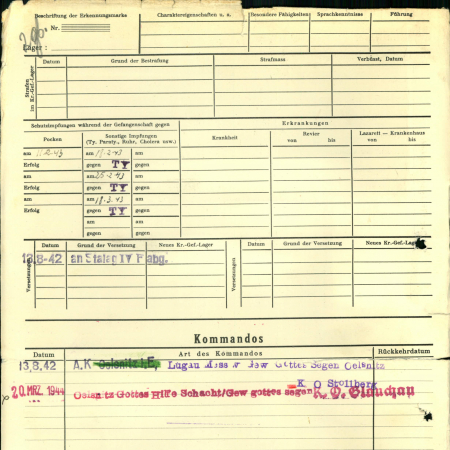 Beschriftung der Erkennungsmarke
Nr.
Lager:
Charaktereigenschaften u. a.
Besondere Fähigkeiten
Sprachkenntnisse
Führung
Strafen im Kr.-Gef.-Lager
Datum
Grund der Bestrafung
Strafmass
Verbüsst, Datum
Schutzimpfungen während der Gefangenschaft gegen
Erkrankungen
Pocken
Sonstige Impfungen
(Ty. Paraty., Ruhr, Cholera usw.)
Krankheit
Revier
von bis
Lazarett — Krankenhaus
von bis
am 11.2.43 am 19.2.43 am
Erfolg gegen TY gegen
am am 26.2.43 am
Erfolg gegen TY gegen
am am 18.3.43 am
Erfolg gegen TY gegen
am am
gegen gegen
Versetzungen
Datum
Grund der Versetzung
Neues Kr.-Gef.-Lager
Versetzungen
Datum
Grund der Versetzung
Neues Kr.-Gef.-Lager
13.8.42 an Stalag IV F abg.
Kommandos
Datum
Art des Kommandos
Rückkehrdatum
13.8.42 A.K Oelsnitz i.E, Lugau Gew Gottes Segen Oelsnitz
K O Stollberg
20. MRZ. 1944 Oelsnitz Gottes Hilfe Schacht/Gew gottes segen K. O. Glauchau